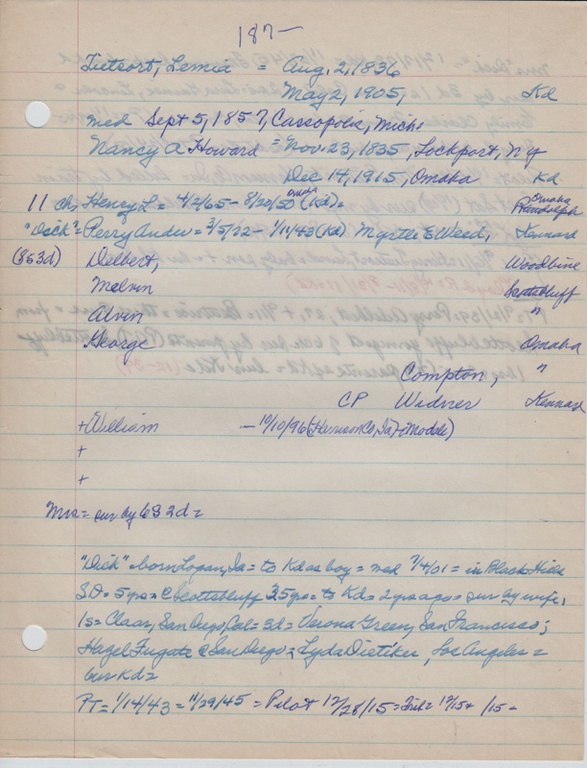 187-
Tietsort, Lemia = Aug. 2, 1836
May 2, 1905, Kd
med Sept 5, 1857, Cassopolis, Mich
Nancy A Howard = Nov. 23, 1835, Lockport, NY
Dec 14, 1915, Omaha Kd
11 ch, Henry L = 4/2/65 - 8/20/50 (Kd) = Omaha
Randolph
"Dick" = Perry Andw = 3/5/22 - 1/11/43 (Kd) Myrtle E Weed, Kennard
(8s3d) Delbert, Woodbine
Melvin Scottsbluff
Alvin "
George Omaha
Compton, "
CP Widner Kennard
+William - 10/10/96 (Harrison Co, Ia) + (Modale)
+
+
Mrs = sur by 6s 2d =
"Dick" = born Logan, Ia = to Kd as boy = med 7/4/01 = in Black Hills
S.D. = 5 yrs = @ Scottsbluff 35 yrs = to Kd = 2 yrs ago = sur by wife,
1s = Claar, San Diego, Cal = 3d = Verona Green, San Francisco;
Hazel Fugate @ San Diego; Lyda Dietiker, Los Angeles =
bur Kd =
PT = 1/14/43 = 11/29/45 = Pilot 12/28/15 = Trib = 12/15 + /15 -